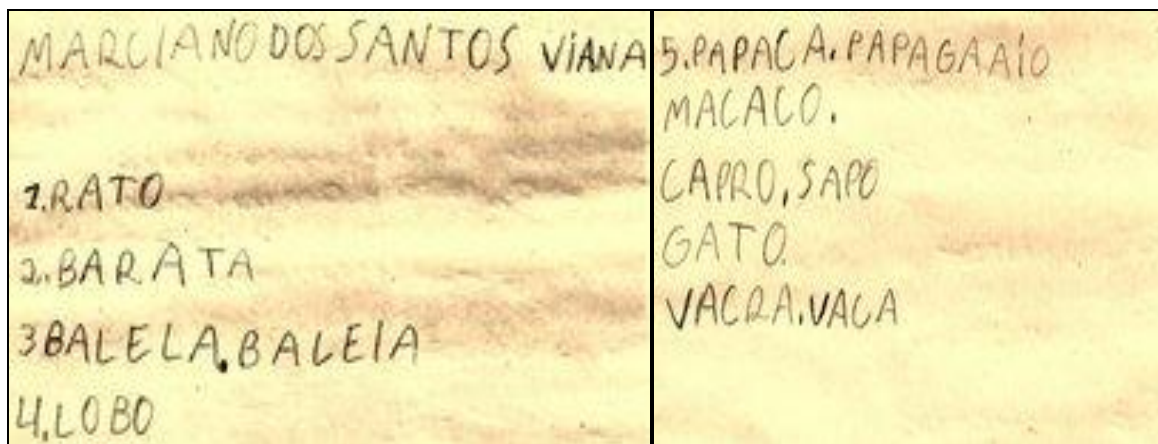 MARCIANO DOS SANTOS ViANA
1.RATO
2.BARATA
3BALELA.BALEIA
4.LOBO
5.PAPACA.PAPAGAAiO
MACACO.
CAPRO,SAPO
GATO.
VACRA.VACA